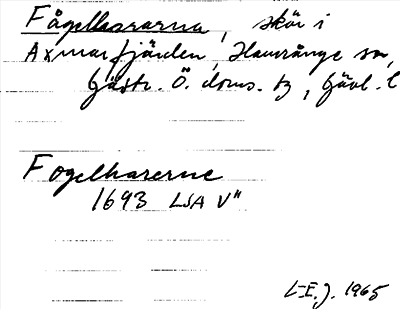 Fågelhararna, skär i
Axmarfjärden, Hamrånge sn,
Gästr. Ö. doms. tg, Gävl. l
Fogelharerne
1693 LSA V"
L-E.J. 1965